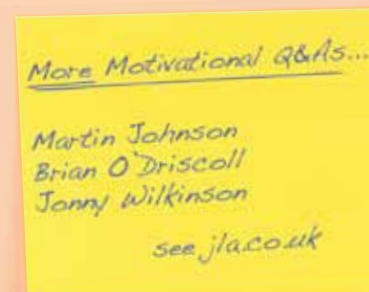 More Motivational Q&As...
Martin Johnson
Brian O'Driscoll
Jonny Wilkinson
see jla.co.uk